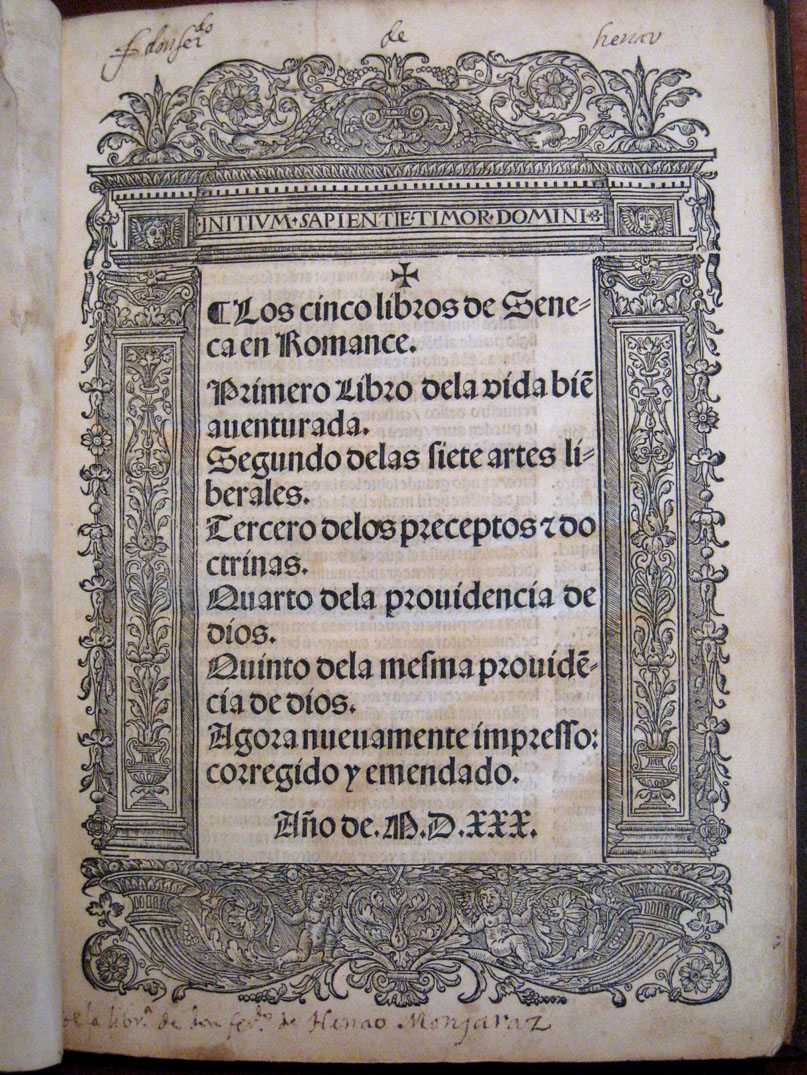 don fer^do de henao
·INITIVM·SAPIENTIE·TIMOR·DOMINI·
✠
¶Los cinco libros de Sene-
ca en Romance.
Primero Libro dela vida biē
auenturada.
Segundo delas siete artes li-
berales.
Tercero delos preceptos ⁊ do
ctrinas.
Quarto dela prouidencia de
dios.
Quinto dela mesma prouidē-
cia de dios.
Agora nueuamente impresso:
corregido y emendado.
Año de. M. D. XXX.
de la libr.^a de don fer.^do de Henao Monjaraz